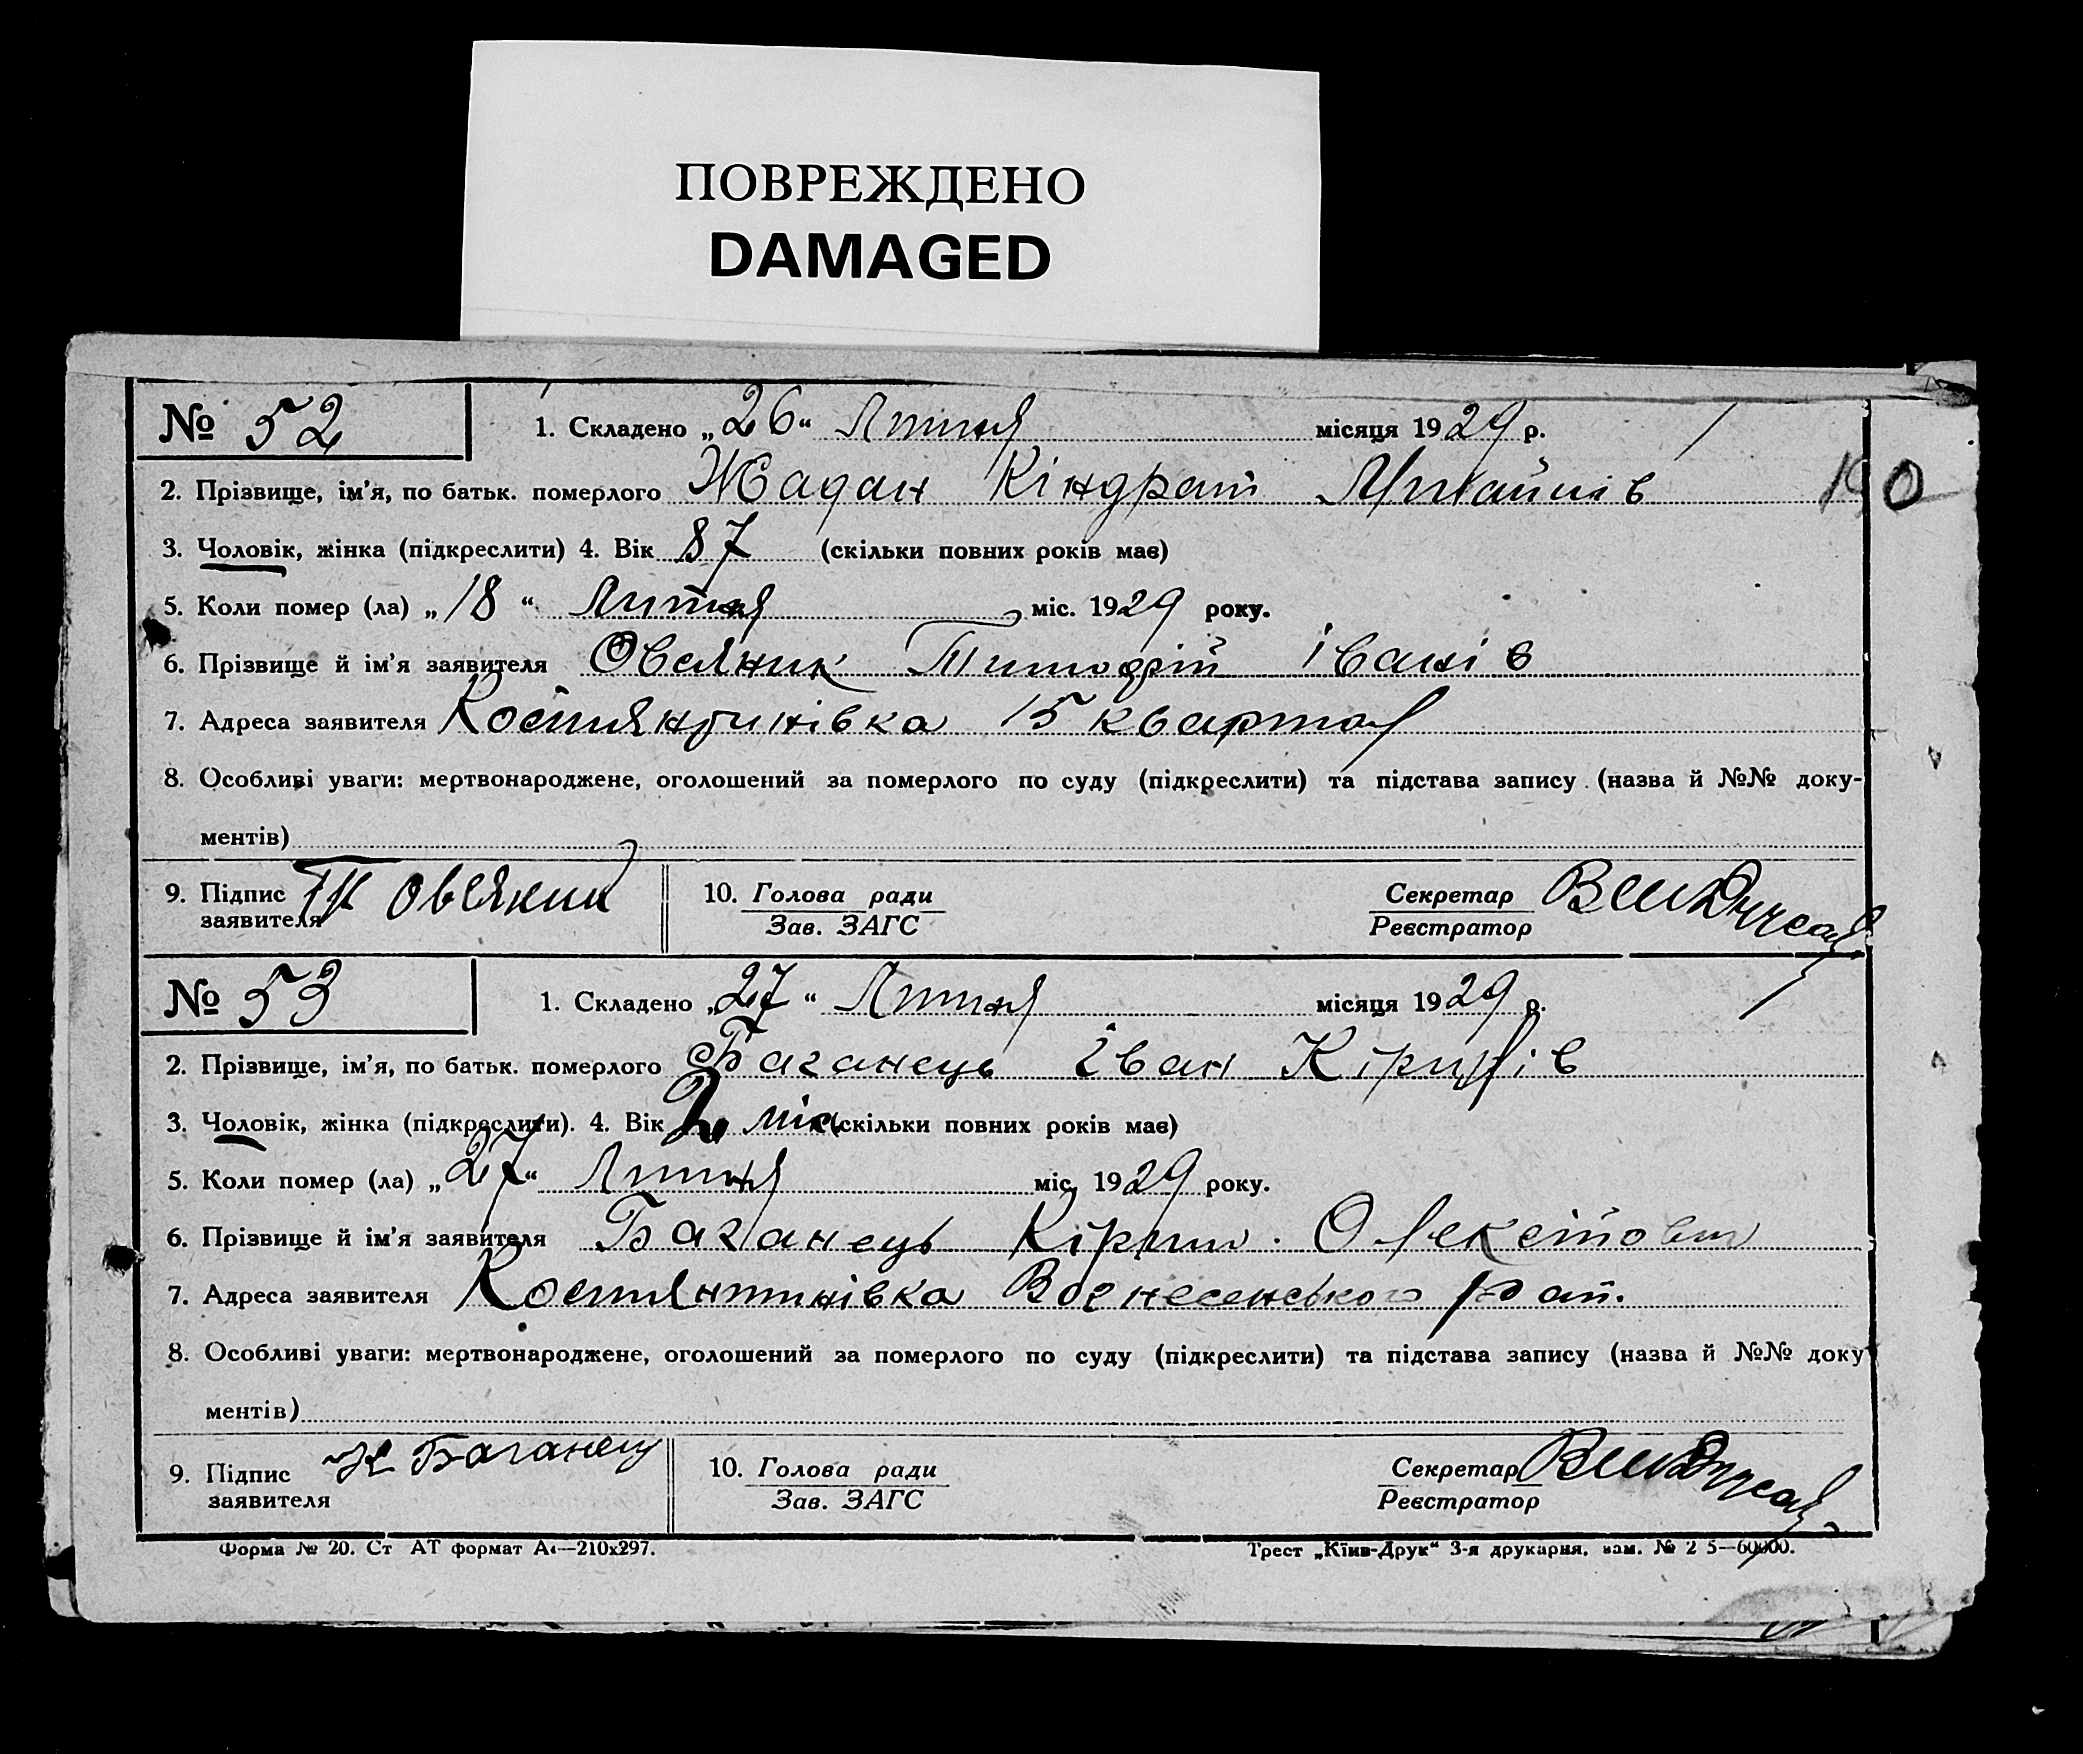 ПОВРЕЖДЕНО
DAMAGED
№ 52 1. Складено „26“ Липня місяця 1929 р.
2. Прізвище, ім'я, по батьк. померлого Жадан Кіндрат
3. Чоловік, жінка (підкреслити) 4. Вік 87 (скільки повних років має)
5. Коли помер (ла) „18“ Липня міс. 1929 року.
6. Прізвище й ім'я заявителя Овсяник Тимофій Іванів
7. Адреса заявителя Костянтинівка 15 квартал
8. Особливі уваги: мертвонароджене, оголошений за померлого по суду (підкреслити) та підстава запису (назва й №№ доку-
ментів)
9. Підпис заявителя 10. Голова ради Секретар
Зав. ЗАГС Реєстратор
№ 53 1. Складено „27“ Липня місяця 1929 р.
2. Прізвище, ім'я, по батьк. померлого Баганець Іван Кірилів
3. Чоловік, жінка (підкреслити). 4. Вік 2 міс. (скільки повних років має)
5. Коли помер (ла) „27“ Липня міс. 1929 року.
6. Прізвище й ім'я заявителя Баганець Кірил
7. Адреса заявителя Костянтинівка Вознесенського рай.
8. Особливі уваги: мертвонароджене, оголошений за померлого по суду (підкреслити) та підстава запису (назва й №№ доку
ментів)
9. Підпис заявителя К Баганец 10. Голова ради Секретар
Зав. ЗАГС Реєстратор
Форма № 20. Ст АТ формат А4—210х297. Трест „Київ-Друк“ 3-я друкарня, зам. №